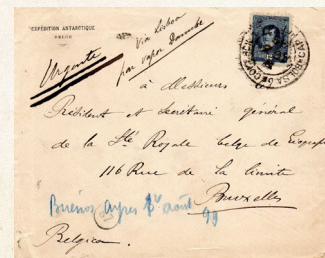 EXPÉDITION ANTARCTIQUE
BELGE
Urgente
Via Lisboa
par vapor Danube
à Messieurs
Président et Secrétaire général
de la Sté Royale belge de Géograp
116 Rue de la Limite
Bruxelles
Buenos Ayres août
99
Belgica.